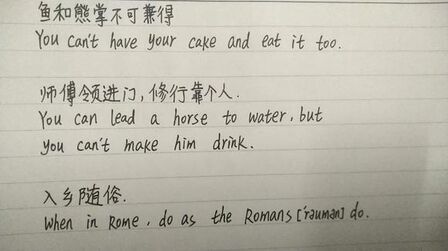 鱼和熊掌不可兼得
You can't have your cake and eat it too.
师傅领进门，修行靠个人.
You can lead a horse to water, but
you can't make him drink.
入乡随俗.
When in Rome, do as the Romans ['rəumən] do.